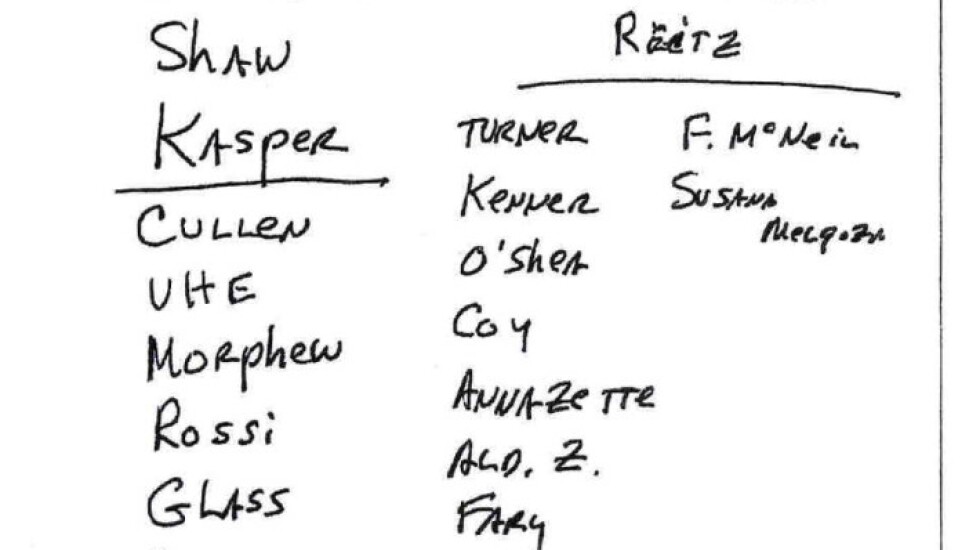 Shaw
Kasper
Cullen
UHE
Morphew
Rossi
Glass
Reitz
Turner
Kenner
O'Shea
Coy
Annazette
Ald. Z.
Fary
F. McNeil
Susana